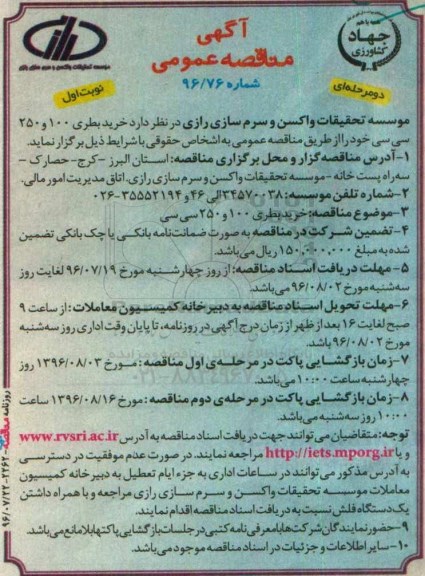 آگهی
مناقصه عمومی
شماره ۹۶/۷۶
همه با هم
جهاد
کشاورزی
دو مرحله‌ای
رازی
موسسه تحقیقات واکسن و سرم سازی رازی
نوبت اول
موسسه تحقیقات واکسن و سرم سازی رازی در نظر دارد خرید بطری ۱۰۰ و ۲۵۰
سی سی خود را از طریق مناقصه عمومی به اشخاص حقوقی با شرایط ذیل برگزار نماید.
۱-آدرس مناقصه‌گزار و محل برگزاری مناقصه: استان البرز -کرج- حصارک –
سه راه پست خانه - موسسه تحقیقات واکسن و سرم سازی رازی. اتاق مدیریت امور مالی.
۲-شماره تلفن موسسه: ۳۴۵۷۰۰۳۸ الی ۴۶ و ۳۵۵۵۲۱۹۴-۰۲۶
۳-موضوع مناقصه: خرید بطری ۱۰۰ و ۲۵۰ سی سی
۴-تضمین شرکت در مناقصه به صورت ضمانت‌نامه بانکی یا چک بانکی تضمین
شده به مبلغ ۱۵۰,۰۰۰,۰۰۰ ریال می‌باشد.
۵-مهلت دریافت اسناد مناقصه: از روز چهارشنبه مورخ ۹۶/۰۷/۱۹ لغایت روز
سه شنبه مورخ ۹۶/۰۸/۰۲ می‌باشد.
۶-مهلت تحویل اسناد مناقصه به دبیرخانه کمیسیون معاملات: از ساعت ۹
صبح لغایت ۱۶ بعد از ظهر از زمان درج آگهی در روزنامه، تا پایان وقت اداری روز سه‌شنبه
مورخ ۹۶/۰۸/۰۲ باشد.
۷-زمان بازگشایی پاکت در مرحله‌ی اول مناقصه: مورخ ۱۳۹۶/۰۸/۰۳ روز
چهارشنبه ساعت ۱۰:۰۰ می‌باشد.
۸-زمان بازگشایی پاکت در مرحله‌ی دوم مناقصه: مورخ ۱۳۹۶/۰۸/۱۶ ساعت
۱۰:۰۰ روز سه شنبه می‌باشد.
توجه: متقاضیان می‌توانند جهت دریافت اسناد مناقصه به آدرس www.rvsri.ac.ir
و یا http://iets.mporg.ir مراجعه نمایند. در صورت عدم موفقیت در دسترسی
به آدرس مذکور می‌توانند در ساعات اداری به جزء ایام تعطیل به دبیرخانه کمیسیون
معاملات موسسه تحقیقات واکسن و سرم سازی رازی مراجعه و با همراه داشتن
یک دستگاه فلش نسبت به دریافت اسناد مناقصه اقدام نمایند.
۹-حضور نمایندگان شرکت‌ها با معرفی نامه کتبی در جلسات بازگشایی پاکتها بلامانع می‌باشد.
۱۰-سایر اطلاعات و جزئیات در اسناد مناقصه موجود می‌باشد.